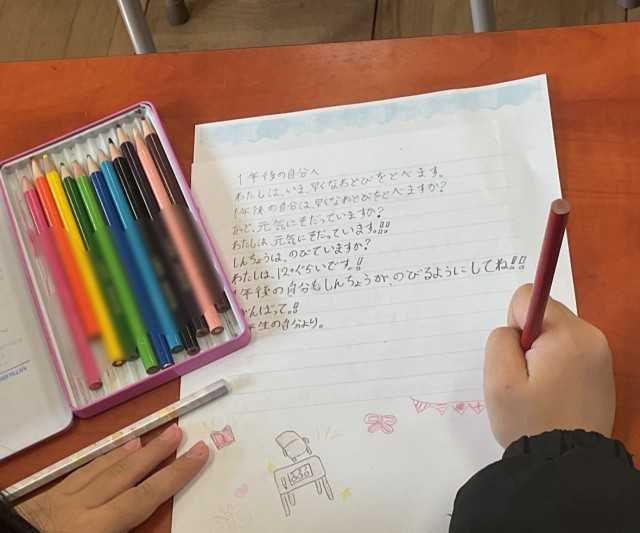 1年後の自分へ
わたしは、いま、早くなわとびをとべます。
1年後の自分は、早くなわとびをとべますか?
あと、元気にそだっていますか?
わたしは、元気にそだっています。!!
しんちょうは、のびていますか?
わたしは、120ぐらいです。!!
1年後の自分もしんちょうが、のびるようにしてね!!!
がんばって。!!
生の自分より。
MITSUBISHI